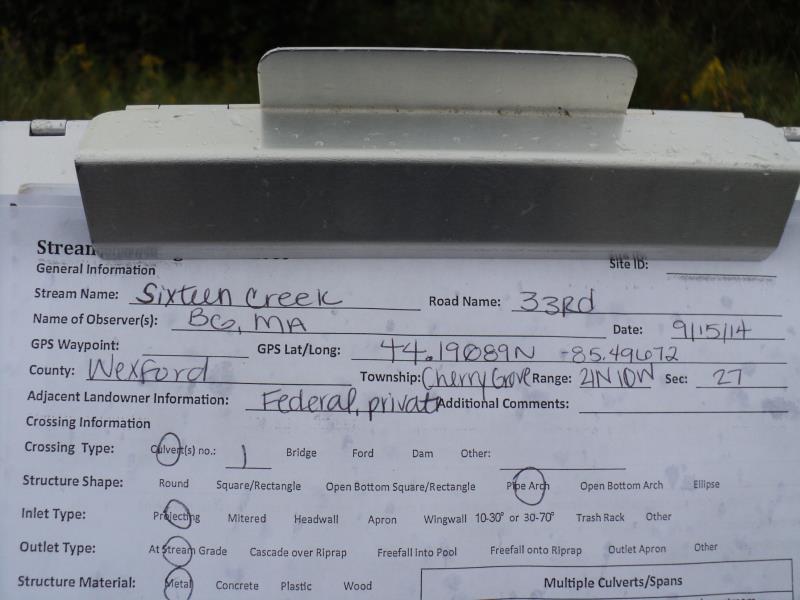 Stream
General Information Site ID:
Stream Name: Sixteen Creek Road Name: 33Rd
Name of Observer(s): BG, MA Date: 9/15/14
GPS Waypoint: GPS Lat/Long: 44.19089N -85.49672
County: Wexford Township: Cherry Grove Range: 21N10W Sec: 27
Adjacent Landowner Information: Federal, private Additional Comments:
Crossing Information
Crossing Type: Culvert(s) no.: 1 Bridge Ford Dam Other:
Structure Shape: Round Square/Rectangle Open Bottom Square/Rectangle Pipe Arch Open Bottom Arch Ellipse
Inlet Type: Projecting Mitered Headwall Apron Wingwall 10-30° or 30-70° Trash Rack Other
Outlet Type: At Stream Grade Cascade over Riprap Freefall into Pool Freefall onto Riprap Outlet Apron Other
Structure Material: Metal Concrete Plastic Wood Multiple Culverts/Spans